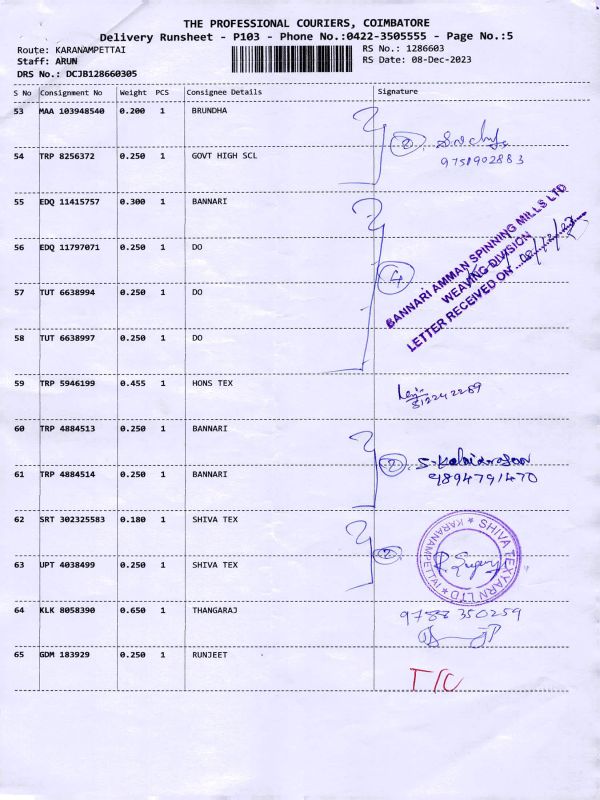 THE PROFESSIONAL COURIERS, COIMBATORE
Delivery Runsheet - P103 - Phone No.:0422-3505555 - Page No.:5
Route: KARANAMPETTAI RS No.: 1286603
Staff: ARUN RS Date: 08-Dec-2023
DRS No.: DCJB128660305
S No Consignment No Weight PCS Consignee Details Signature
53 MAA 103948540 0.200 1 BRUNDHA
2
9751902883
54 TRP 8256372 0.250 1 GOVT HIGH SCL
55 EDQ 11415757 0.300 1 BANNARI
56 EDQ 11797071 0.250 1 DO
4
BANNARI AMMAN SPINNING MILLS LTD
WEAVING DIVISION
LETTER RECEIVED ON
57 TUT 6638994 0.250 1 DO
58 TUT 6638997 0.250 1 DO
59 TRP 5946199 0.455 1 HONS TEX
60 TRP 4884513 0.250 1 BANNARI
2
9894791470
61 TRP 4884514 0.250 1 BANNARI
62 SRT 302325583 0.180 1 SHIVA TEX
2
SHIVA TEXYARN LTD
63 UPT 4038499 0.250 1 SHIVA TEX
64 KLK 8058390 0.650 1 THANGARAJ
9788350259
65 GDM 183929 0.250 1 RUNJEET